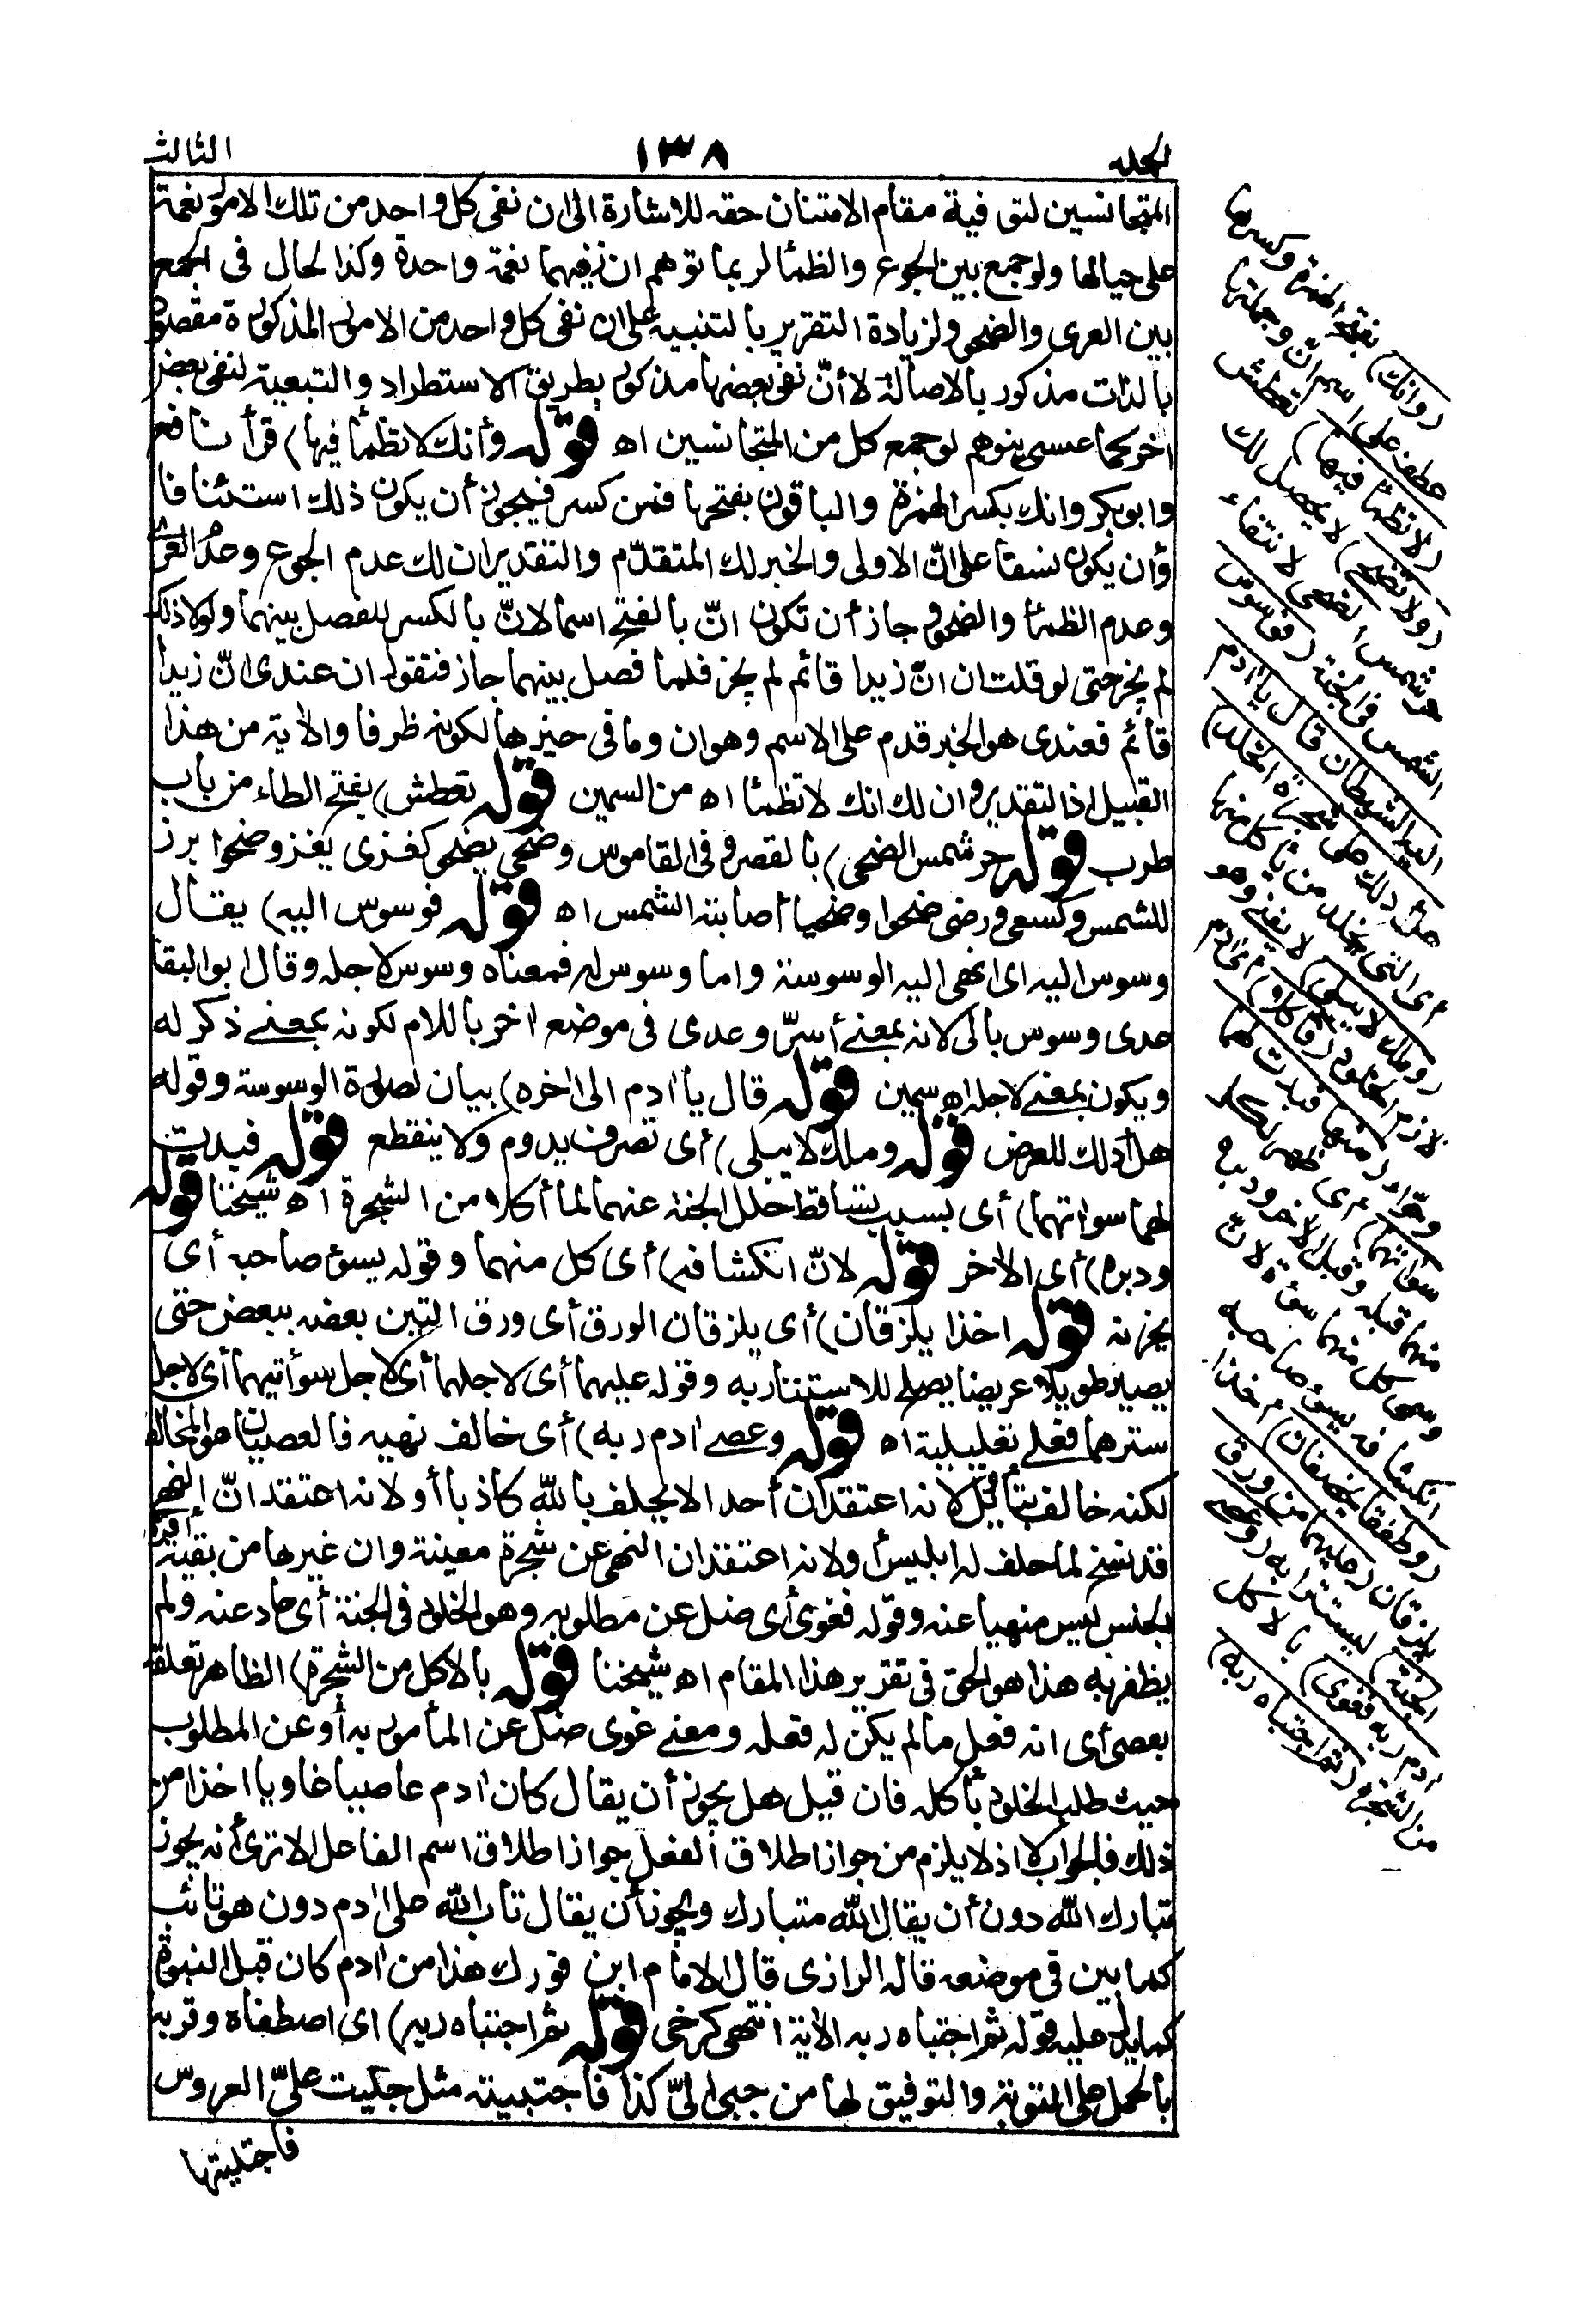 الجلد
١٣٨
الثالث
المتجانسين لتوفية مقام الامتنان حقه للاشارة الى ان نفى كل واحد من تلك الامور نعمة
على حيالها ولو جمع بين الجوع والظمأ لربما توهم ان نفيهما نعمة واحدة وكذا الحال فى الجمع
بين العرى والضحو ولزيادة التقرير بالتنبيه على ان نفى كل واحد من الامور المذكورة مقصود
بالذات مذكور بالاصالة لا أنّ نفى بعضها مذكور بطريق الاستطراد والتبعية لنفى بعض
اخر كما عسى يتوهم لو جمع كل من المتجانسين اه قوله وأنك لا تظمأ فيها) قرأ نافع
وابو بكر وانك بكسر الهمزة والباقون بفتحها فمن كسر فيجوز أن يكون ذلك استئنافا
وأن يكون نسقا على انّ الاولى والخبر لك المتقدّم والتقدير ان لك عدم الجوع وعدم العرى
وعدم الظمأ والضحو وجاز أن تكون انّ بالفتح اسما لانّ بالكسر للفصل بينهما ولولا ذلك
لم يجز حتى لو قلت ان انّ زيدا قائم لم يجز فلما فصل بينهما جاز فتقول ان عندى انّ زيدا
قائم فعندى هو الخبر قدم على الاسم وهو ان وما فى حيزها لكونه ظرفا والاية من هذا
القبيل اذ التقدير وان لك انك لا تظمأ اه من السمين قوله تعطش) بفتح الطاء من باب
طرب قوله حر شمس الضحى) بالقصر وفى القاموس وضحى يضحو كغزى يغزو ضحوا برز
للشمس وكسعى ورضى ضحوا وضحيا أصابته الشمس اه قوله فوسوس اليه) يقال
وسوس اليه اى انهى اليه الوسوسة واما وسوس له فمعناه وسوس لاجله وقال ابو البقا
عدى وسوس بالى لانه بمعنے أسرّ وعدى فى موضع اخر باللام لكونه بمعنے ذكر له
ويكون بمعنے لاجله اه سمين قوله قال يا ادم الى اخره) بيان لصورة الوسوسة وقوله
هل أدلك للعرض قوله وملك لا يبلى) أى تصرف يدوم ولا ينقطع قوله فبدت
لهما سواتهما) أى بسبب تساقط حلل الجنة عنهما لما أكلا من الشجرة اه شيخنا قوله
ودبره) أى الاخر قوله لانّ انكشافه) أى كل منهما وقوله يسوء صاحبه أى
يحزنه قوله اخذا يلزقان) أى يلزقان الورق أى ورق التين بعضه ببعض حتى
يصير طويلا عريضا يصلح للاستتار به وقوله عليهما أى لاجلهما أى لاجل سوأتيهما أى لاجل
سترهما فعلى تعليلية اه قوله وعصے ادم ربه) أى خالف نهيه فالعصيان هو المخالفة
لكنه خالف بتأويل لانه اعتقد ان أحدا لا يحلف بالله كاذبا أو لانه اعتقد انّ النهى
قد نسخ لما حلف له ابليس أو لانه اعتقد ان النهى عن شجرة معينة وان غيرها من بقية أفراد
الجنس ليس منهيا عنه وقوله فغوى أى ضل عن مطلوبه وهو الخلود فى الجنة أى حاد عنه ولم
يظفر به هذا هو الحق فى تقرير هذا المقام اه شيخنا قوله بالاكل من الشجرة) الظاهر تعلقه
بعصى أى انه فعل ما لم يكن له فعله ومعنے غوى ضل عن المأمور به أو عن المطلوب
حيث طلب الخلود بأكله فان قيل هل يجوز أن يقال كان ادم عاصيا غاويا اخذا من
ذلك فالجواب لا اذ لا يلزم من جواز اطلاق الفعل جواز اطلاق اسم الفاعل الا ترى أنه يجوز
تبارك الله دون أن يقال الله متبارك ويجوز أن يقال تاب الله على ادم دون هو تائب
كما بين فى موضعه قاله الرازى قال الامام ابن فورك هذا من ادم كان قبل النبوة
كما يدل عليه قوله ثم اجتباه ربه الاية انتهى كرخى قوله ثم اجتباه ربه) اى اصطفاه وقربه
بالحمل على التوبة والتوفيق لها من جبى الىّ كذا فاجتبيته مثل جليت علىّ العروس
فاجتليتها
(وانك) بفتح الهمزة وكسرها
عطف على اسم انّ وجملتها
(لا تظمأ فيها) تعطش
(ولا تضحى) لا يحصل لك
حر شمس الضحى لانتفاء
الشمس فى الجنة (فوسوس
اليه الشيطان قال يا ادم
هل أدلك على شجرة الخلد)
اى التى يخلد من يأكل منها
(وملك لا يبلى) لا يفنى وهو
لازم الخلود (فأكلا) اى ادم
وحوّاء (منها فبدت لهما
سواتهما) اى ظهر لكل
منهما قبله وقبل الاخر ودبره
وسمى كل منهما سوأة لانّ
انكشافه يسوء صاحبه
(وطفقا يخصفان) اخذا
يلزقان (عليهما من ورق
الجنة) ليستترا به (وعصى
ادم ربه فغوى) بالاكل
من الشجرة (ثم اجتباه ربه)